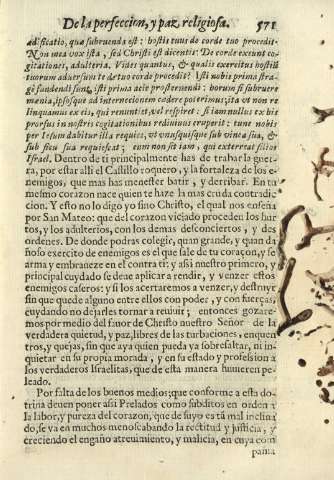 De la perfeccion, y paz religiosa. 571
ædificatio, quæ subruenda est: hostis tuus de corde tuo procedit.
Non mea vox ista, sed Christi est dicentis: De corde exeunt co-
gitationes, adulteria. Vides quantus, & qualis exercitus hostiū
tuorum aduersum te de tuo corde procedit? Isti nobis prima stra-
ge fundendi sunt, isti prima acie prosternendi: horum si subruere
mœnia, ipsosque ad internecionem cædere poterimus, ita vt non re
linquamus ex eis, qui renuntiet, vel respiret: si iam nullus ex his
prorsus in nostris cogitationibus rediuiuus eruperit: tunc nobis
per Iesum dabitur illa requies, vt vnusquisque sub vinea sua, &
sub ficu sua requiescat; cum non sit iam, qui exterreat filios
Israel. Dentro de ti principalmente has de trabar la gue-
rra, por estar alli el Castillo roquero, y la fortaleza de los e-
nemigos, que mas has menester batir, y derribar. En tu
mesmo coraçon nace quien te haze la mas cruda contradic
cion. Y esto no lo digo yo sino Christo, el qual nos enseña
por San Mateo: que del coraçon viejado proceden los hur
tos, y los adulterios, con los demas desconciertos, y des
ordenes. De donde podras colegir, quan grande, y quan da
ñoso exercito de enemigos es el que sale de tu coraçon, y se
arma y embrabeze en el contra ti: y assi nuestro primero, y
principal cuydado se deue aplicar a rendir, y venzer estos
enemigos caseros: y si los acertaremos a venzer, y destruyr
sin que quede alguno entre ellos con poder, y con fuerças,
cuydando no dejarles tornar a reuiuir; entonces gozare-
mos por medio del fauor de Christo nuestro Señor de la
verdadera quietud, y paz, libres de las turbaciones, enquen
tros, y quejas, sin que aya quien pueda ya sobresaltar, ni in-
quietar en su propia morada, y en su estado y profession a
los verdaderos Israelitas, que de esta manera huuieren pe-
leado.
Por falta de los buenos medios; que conforme a esta do-
trina deuen poner assi Prelados como subditos en orden a
la labor, y pureza del coraçon, que de suyo está mal inclina
do, se va en muchos menoscabando la rectitud y justicia, y
creciendo el engaño atreuimiento, y malicia, en cuya com
pañia